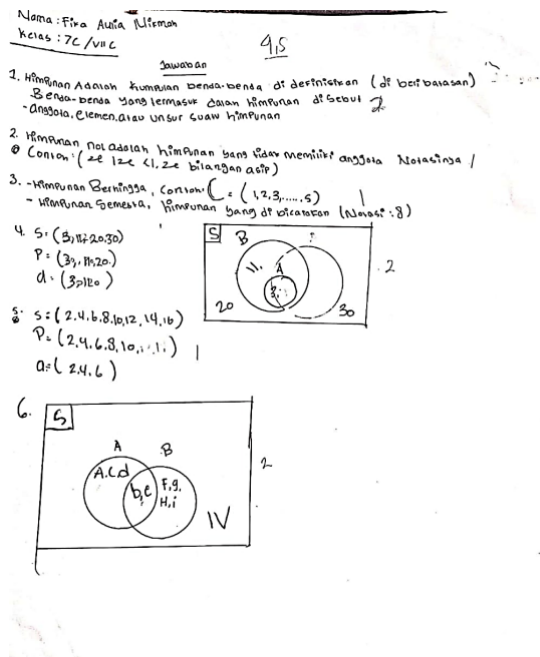 Nama : Fira Aulia Nirmah
Kelas : 7C/VII C
9,5
Jawaban
1. Himpunan Adalah kumpulan benda-benda di definisikan (di beri batasan)
Benda-benda yang termasuk dalam himpunan di sebut 2
-anggota, elemen, atau unsur suatu himpunan
2. Himpunan nol adalah himpunan yang tidak memiliki anggota Notasinya /
Conton : (
bilangan
3. - Himpunan Berhingga, conton : C = (1,2,3,.....,5) 1
- Himpunan Semesta, himpunan yang di bicarakan (Notasi : 8)
4. S :
P :
S
B
A
11,
3,
20
30
2
S : (2,4,6,8,10,12,14,16)
P : (2,4,6,8,10,
1
a = (2,4,6)
6.
S
A B
A.C.d
b,e
F,g.
H,i
IV
2